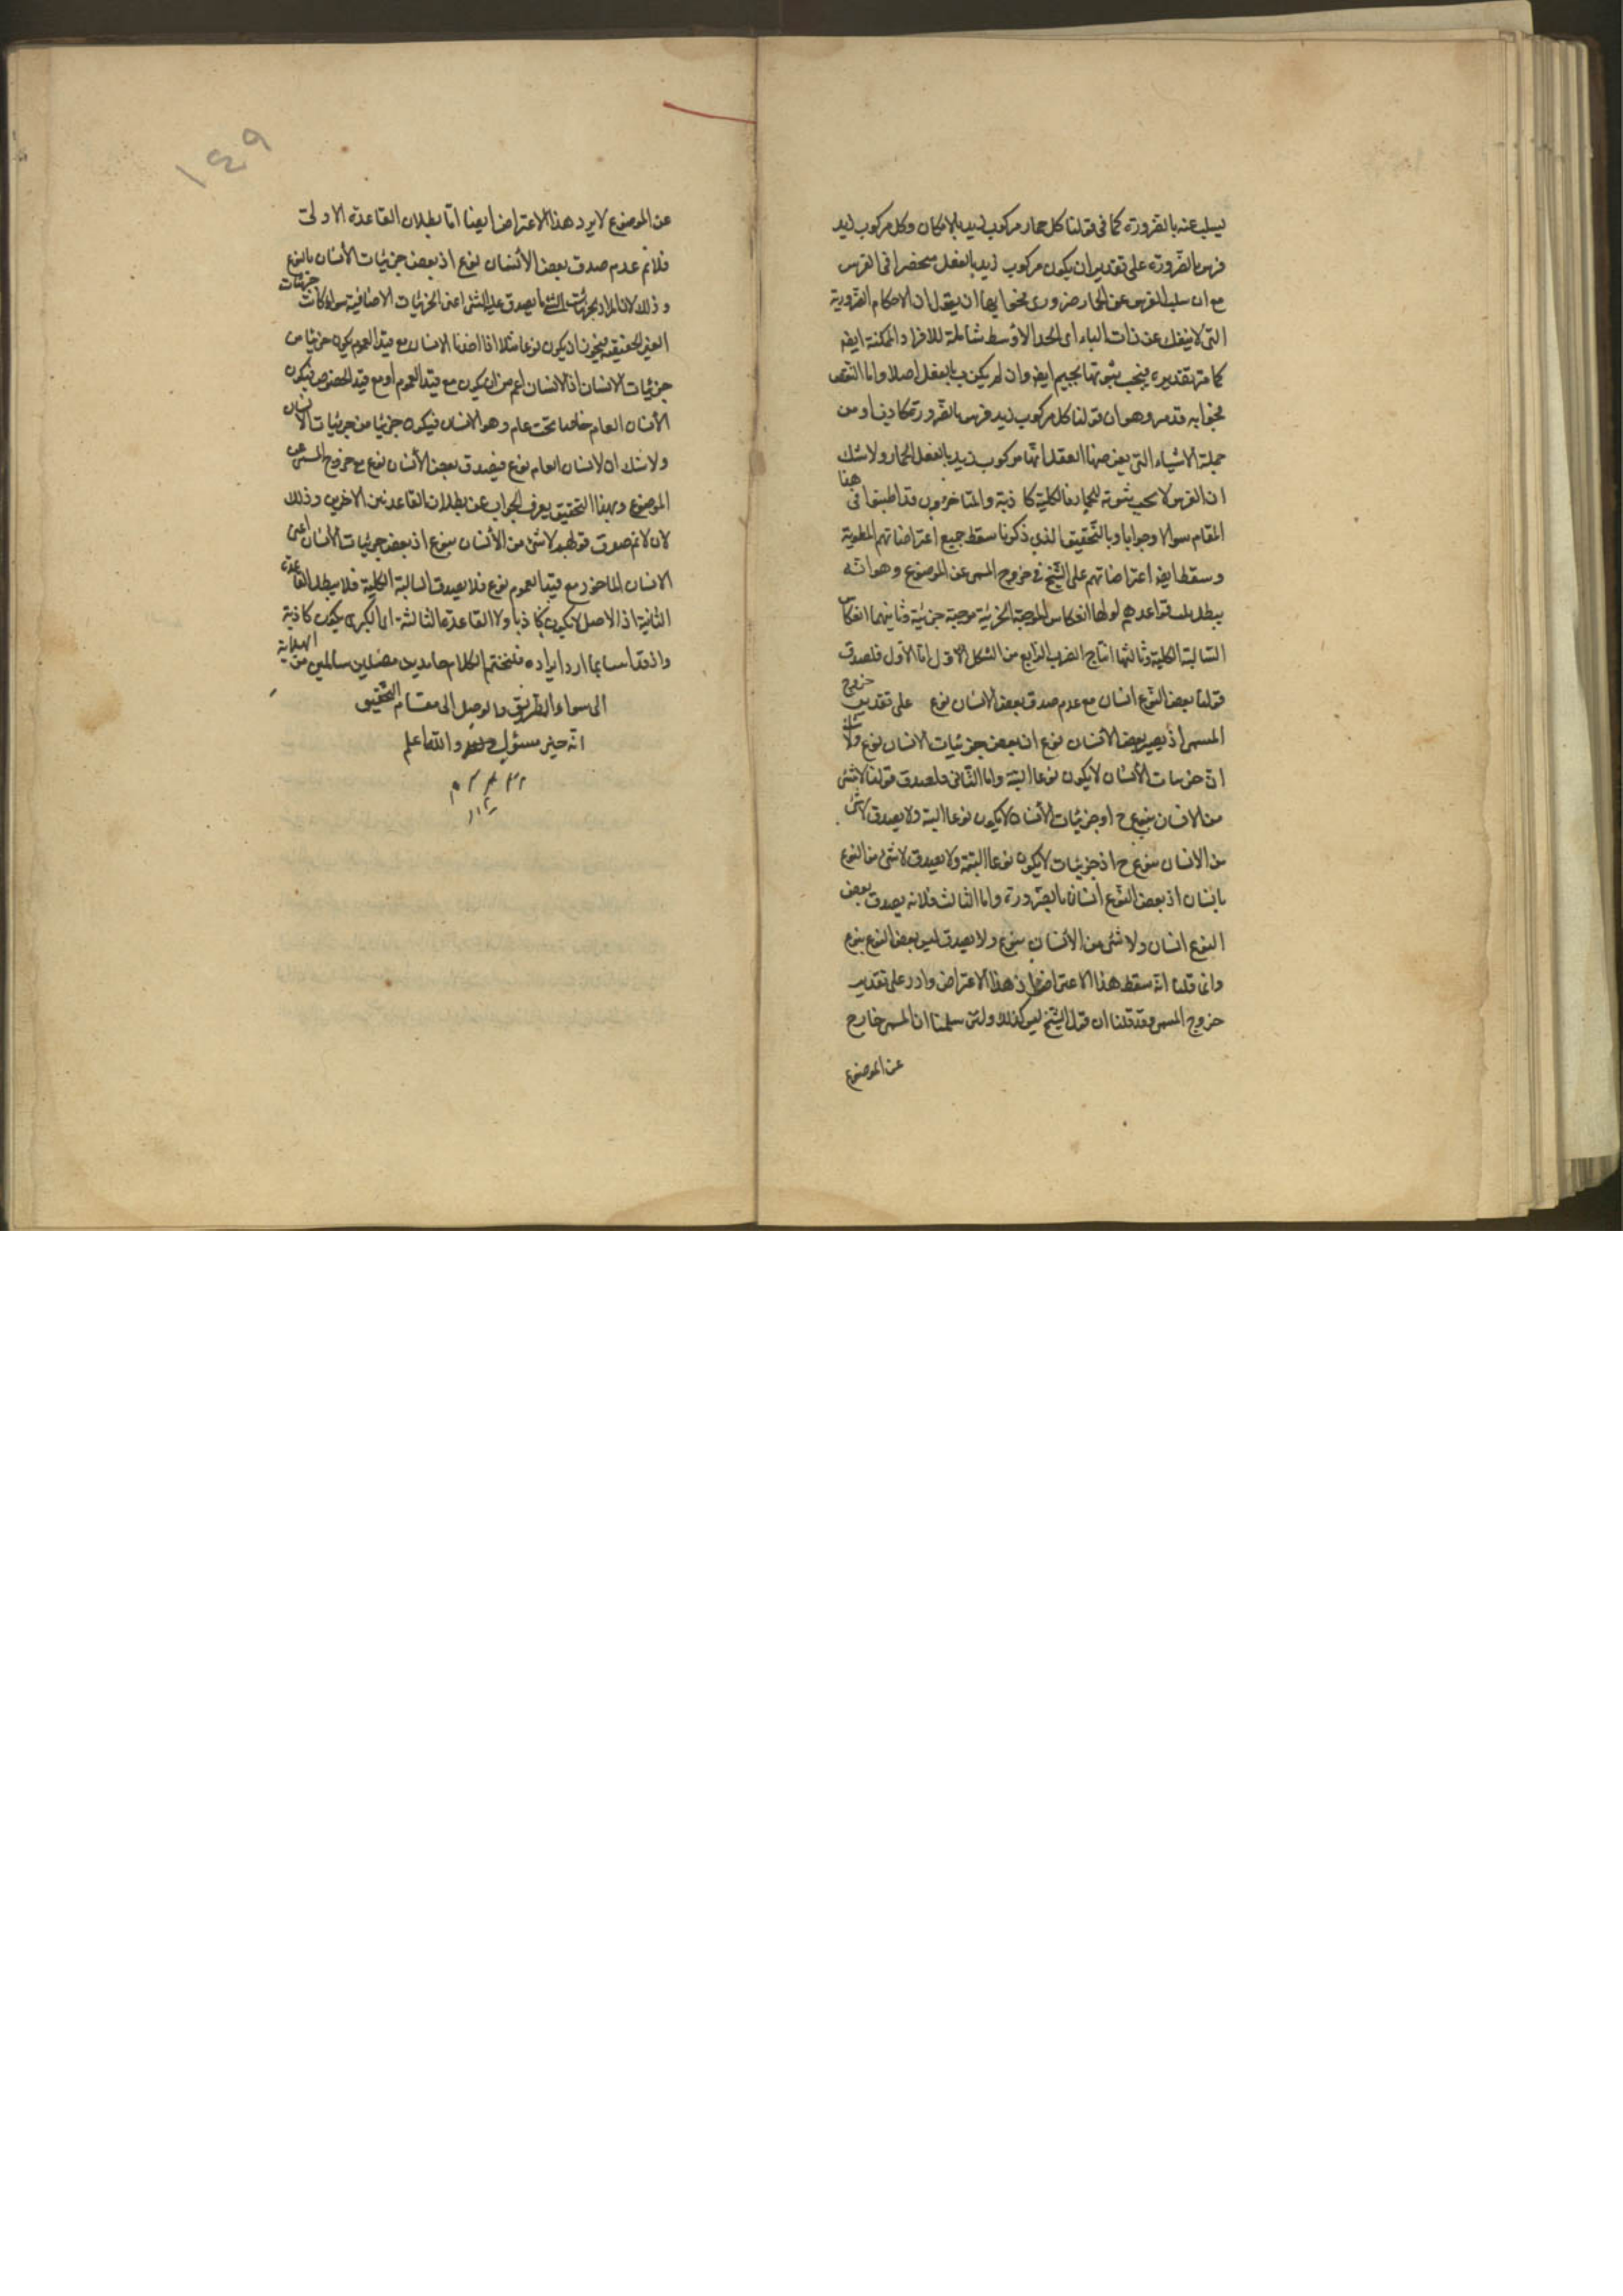 ليسلب عنه بالضرورة كما فى قولنا كل حمار مركوب زيد بالامكان وكل مركوب زيد
فرس بالضرورة على تقدير ان يكون مركوب زيد بالفعل منحصرا فى الفرس
مع ان سلب الفرس عن الحمار ضرورى فجوابها ان يقول ان الاحكام الضرورية
التى لا ينفك عن ذات الباء اى الحد الاوسط شاملة للافراد الممكنة ايضه
كما مر تقديره فيجب ثبوتها لجيم ايضه وان لم يكن ب بالفعل اصلا واما النقص
فجوابه قد مر وهو ان قولنا كل مركوب زيد فرس بالضرورة كاذب اذ من
جملة الاشياء التى يفرضها العقل انها مركوب زيد بالفعل الحمار ولا شك
ان الفرس لا يجب ثبوته للحمار فالكلية كاذبة والمتاخرون قد اطنبوا فى هذا
المقام سوالا وجوابا وبالتحقيق الذى ذكرنا سقط جميع اعتراضاتهم المطوية
وسقط ايضه اعتراضاتهم على الشيخ فى خروج المسمى عن الموضوع وهو انه
يبطل قواعدهم اولها انعكاس الموجبة الجزئية موجبة جزئية وثانيهما انعكاس
السالبة الكلية وثالثها انتاج الضرب الرابع من الشكل الاول اما الاول فلصدق
قولنا بعض النوع انسان مع عدم صدق بعض الانسان نوع على تقدير خروج
المسمى اذ يصير بعض الانسان نوع ان بعض جزئيات الانسان نوع ولا شك
ان جزئيات الأنسان لا يكون نوعا البتة واما الثانى فلصدق قولنا لا شئ
من الانسان بنوع ح اذ جزئيات الأنسان لا يكون نوعا البتة ولا يصدق لا شئ
من الانسان بنوع ح اذ جزئيات لا يكون نوعا البتة ولا يصدق لا شئ من النوع
بانسان اذ بعض النوع انسان بالضرورة واما الثالث فلانه يصدق بعض
النوع انسان ولا شئ من الأنسان بنوع ولا يصدق ليس بعض النوع بنوع
وانما قلنا انه سقط هذا الاعتراض اذ هذا الاعتراض وارد على تقدير
خروج المسمى وقد قلنا ان قول الشيخ ليس كذلك ولئن سلمنا ان المسمى خارج
عن الموضوع
١٤٩
عن الموضوع لا يرد هذا الاعتراض ايضا اما بطلان القاعدة الاولى
فلانم عدم صدق بعض الأنسان نوع اذ بعض جزئيات الأنسان بالنوع
وذلك لان المراد بجزئيات الشئ ما يصدق عليه الشئ اعنى الجزئيات الاضافية سواء كانت جزئيات
الغير الحقيقية فيجوز ان يكون نوعا مثلا اذا اخذنا الانسان مع قيد العموم يكون جزئيا من
جزئيات الانسان اذ الانسان اعم من ان يكون مع قيد العموم او مع قيد الخصوص فيكون
الأنسان العام خاصا تحت عام وهو الانسان فيكون جزئيا من جزئيات الانسان
ولا شك ان الانسان العام نوع فيصدق بعض الأنسان نوع مع خروج المسمى عن
الموضوع وبهذا التحقيق يعرف الجواب عن بطلان القاعدتين الاخرين وذلك
لان لانم صدق قولهم لا شئ من الأنسان بنوع اذ بعض جزئيات الأنسان اعنى
الانسان الماخوذ مع قيد العموم نوع فلا يصدق السالبة الكلية فلا يبطل القاعدة
الثانية اذ الاصل لا يكون كاذبا ولا القاعدة الثالثة اى الكبرى يكون كاذبة
واذ قد ايراده فلنختتم الكلام حامدين مصلين سائلين من الهداية
الى سواء الطريق والوصل الى مقام التحقيق
انه خير مسئول والله اعلم